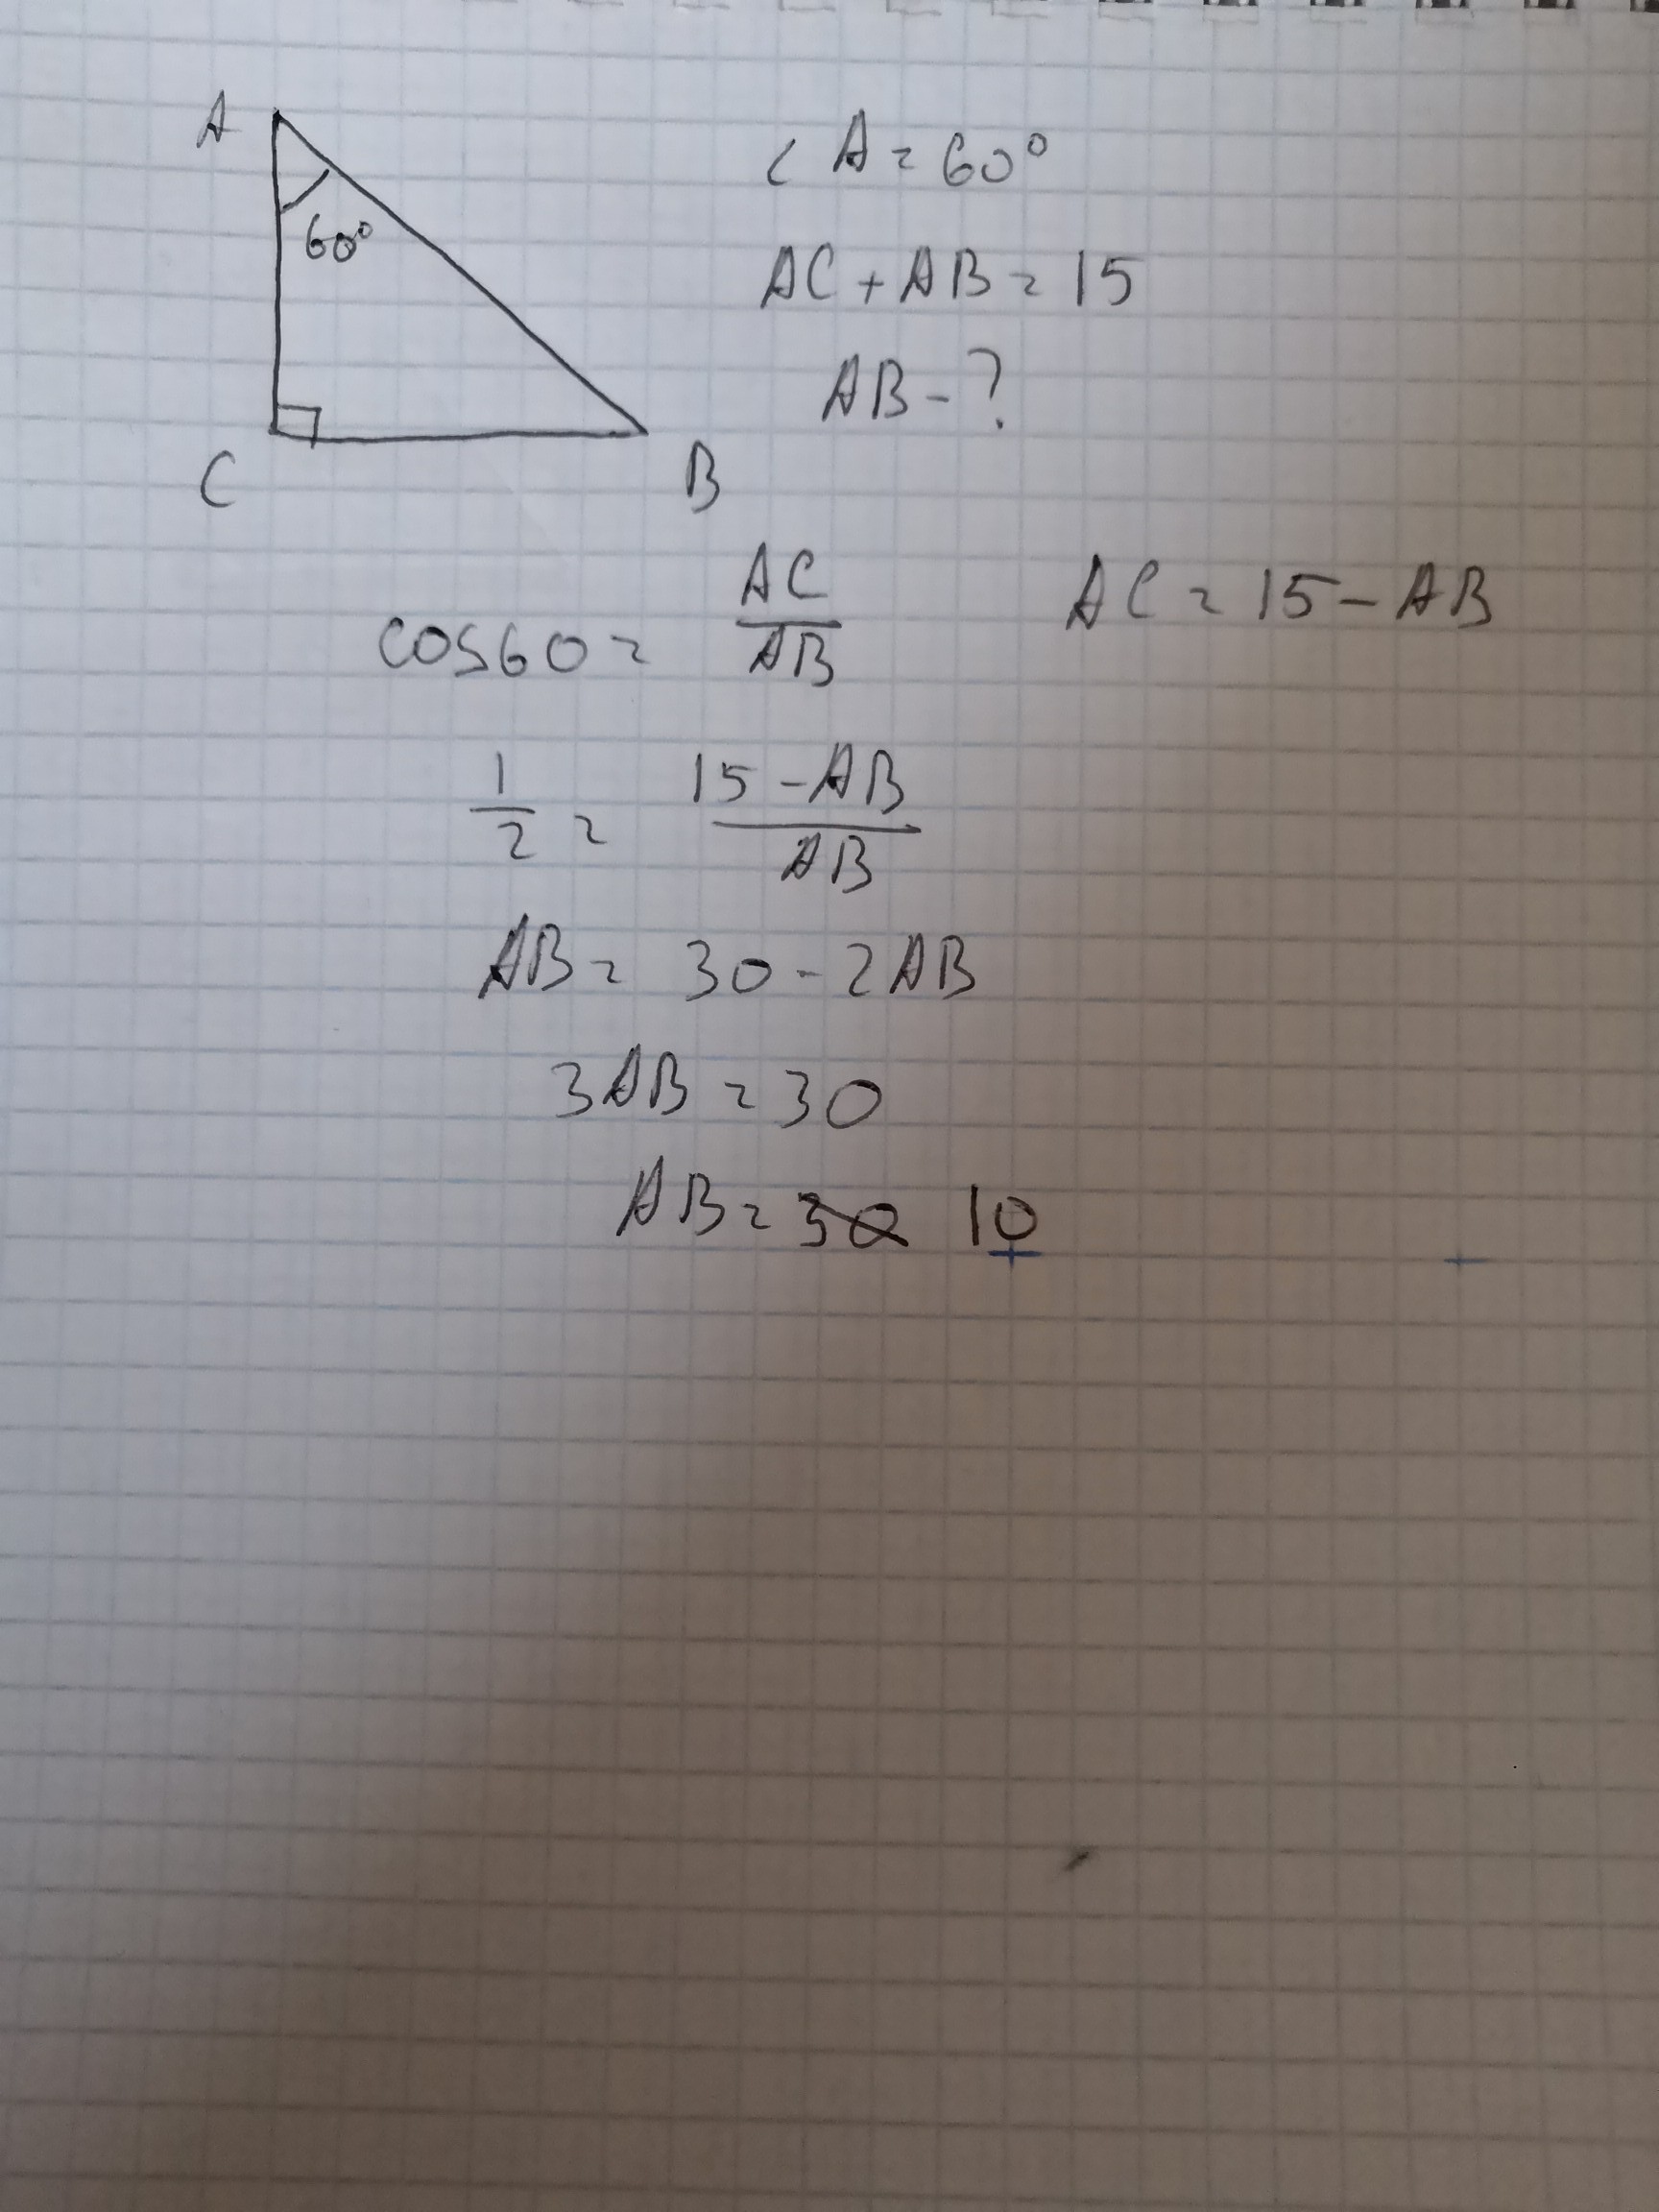 A
60°
C
B
∠ A = 60°
AC + AB = 15
AB - ?
cos60 = AC/AB
AC = 15 - AB
1/2 = 15 - AB/AB
AB = 30 - 2AB
3AB = 30
AB = 30 10